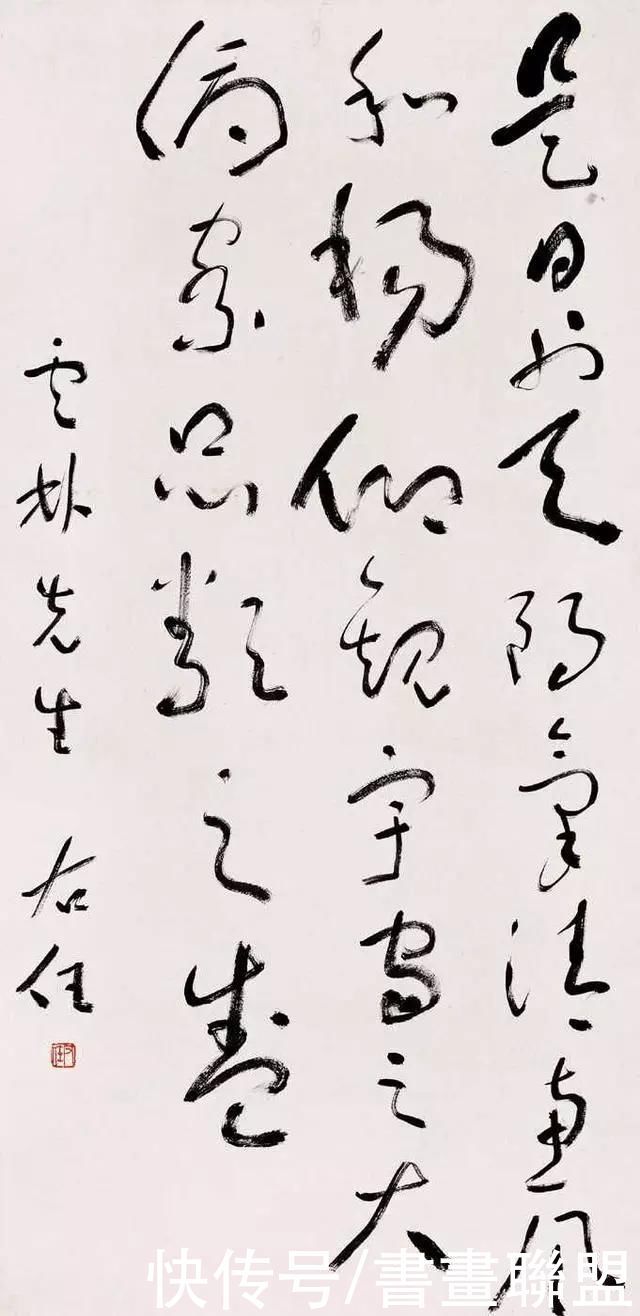 是日也天朗氣清惠風
和暢仰觀宇宙之大
俯察品類之盛
雲林先生 右任
快传号/書畫聯盟